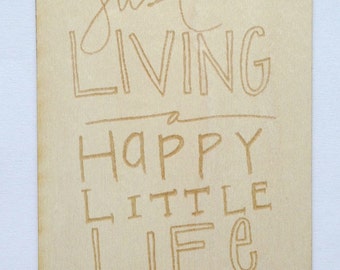 just
LIVING
a
HAPPY
LITTLE
LIFE